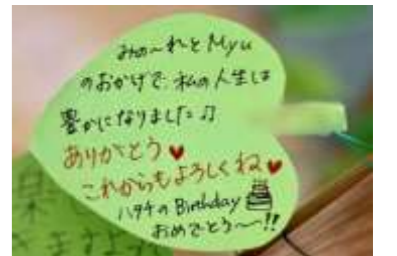 みの〜れとMyu
のおかげで、私の人生は
豊かになりました♫
ありがとう♥
これからもよろしくね♥
ハタチのBirthday
おめでとう〜〜!!